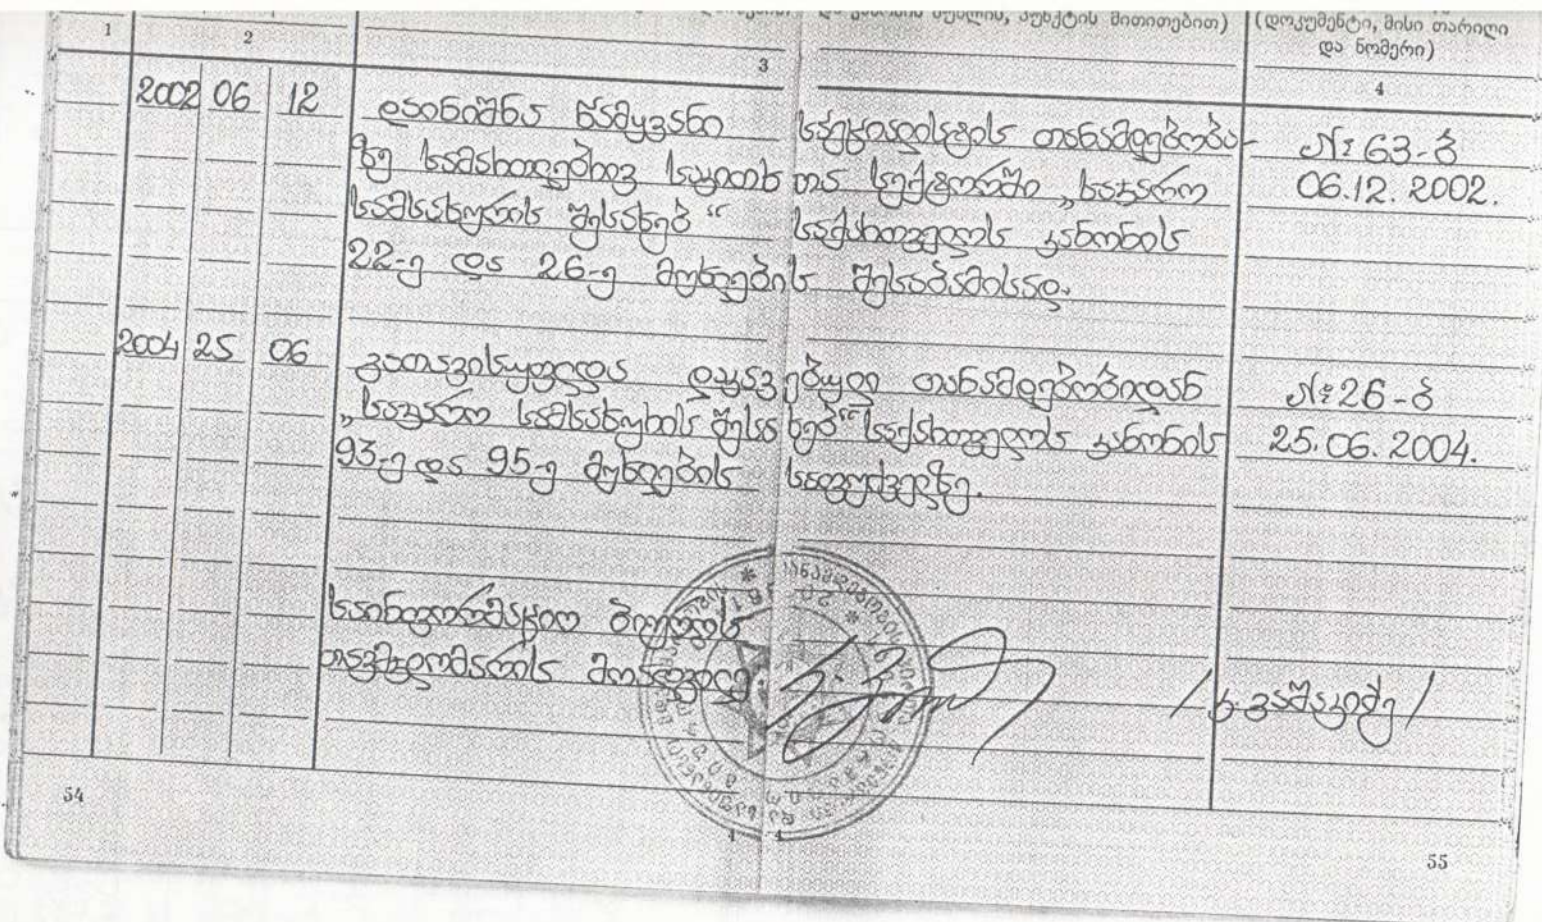 და მუხლის, პუნქტის მითითებით)
(დოკუმენტი, მისი თარიღი
და ნომერი)
1 2 3 4
2002 06 12 დაინიშნა წამყვანი სპეციალისტის თანამდებობა- №63-ბ
ზე სამართლებრივ საკითხთა სექტორში „საჯარო 06.12.2002.
სამსახურის შესახებ“ საქართველოს კანონის
22-ე და 26-ე მუხლების შესაბამისად.
2004 25 06 გათავისუფლდა დაკავებული თანამდებობიდან №26-ბ
„საჯარო სამსახურის შესახებ“ საქართველოს კანონის 25.06.2004.
93-ე და 95-ე მუხლების საფუძველზე.
საინფორმაციო ბიუროს
თავმჯდომარის მოადგილე
54
55